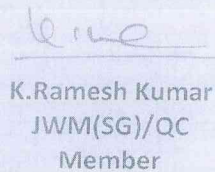 K.Ramesh Kumar
JWM(SG)/QC
Member